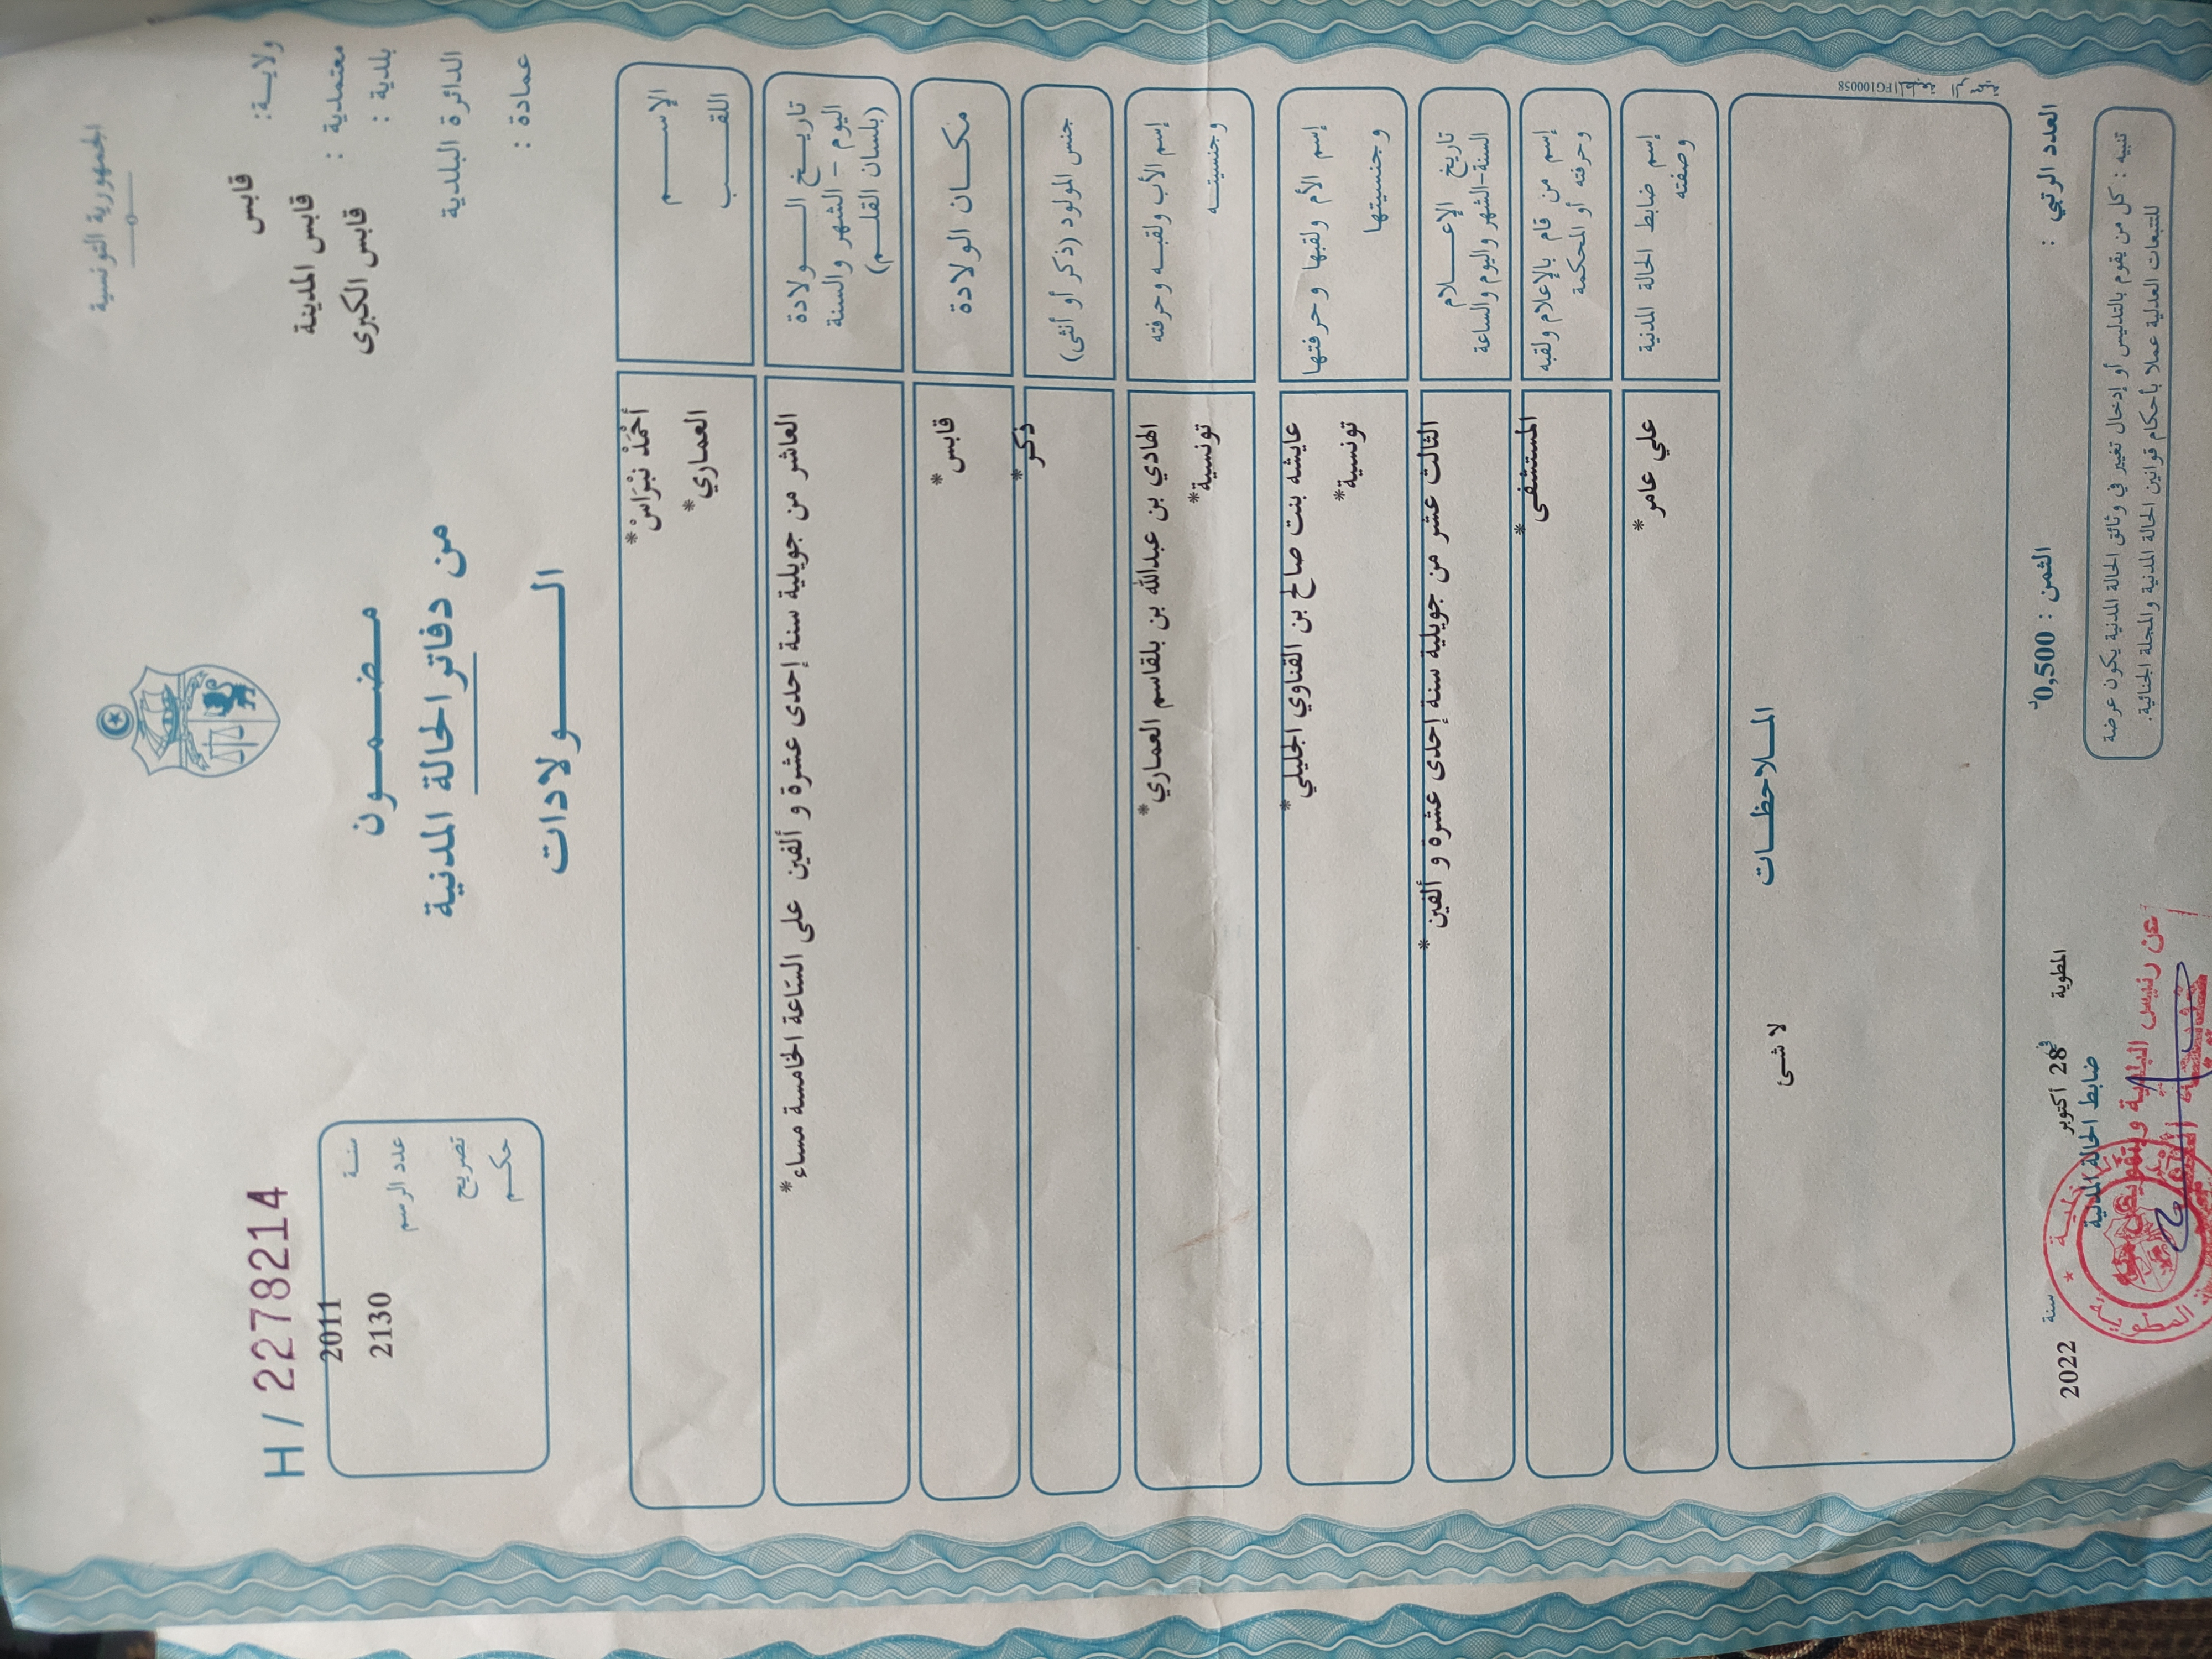 الجمهورية التونسية
ولايـــة: قابس
معتمدية : قابس المدينة
بلدية : قابس الكبرى
الدائرة البلدية
عمادة :
مـــضـــمـــون
من دفاتر الحالة المدنية
الـــــولادات
H / 2278214
سنـــة 2011
عدد الرسم 2130
تصريح
حكـــم
الإســـــم أَحْمَدْ نَبْرَاسْ *
اللقـــــب العماري *
تاريـــخ الـــــولادة العاشر من جويلية سنة إحدى عشرة و ألفين على الساعة الخامسة مساء *
اليوم - الشهر والسنة
(بلسان القلـــم)
مكـــان الولادة قابس *
جنس المولود (ذكر أو أنثى) ذكر *
إسم الأب ولقبـــه وحرفته الهادي بن عبدالله بن بلقاسم العماري *
وجنسيتـــه تونسية *
إسم الأم ولقبها وحرفتها عايشه بنت صالح بن القناوي الجليلي *
وجنسيتها تونسية *
تاريخ الإعـــــلام الثالث عشر من جويلية سنة إحدى عشرة و ألفين *
السنة-الشهر واليوم والساعة
إسم من قام بالإعلام ولقبه المستشفى *
وحرفته أو المحكمة
إسم ضابط الحالة المدنية علي عامر *
وصفته
المـــلاحظـــات
لا شئ
FG100058
العدد الرتبي :
الثمن : 0,500د
المطوية في 28 أكتوبر سنة 2022
ضابط الحالة المدنية
عن رئيس البلدية وبتفويض منه
تنبيه : كل من يقوم بالتدليس أو إدخال تغيير في وثائق الحالة المدنية يكون عرضة
للتتبعات العدلية عملا بأحكام قوانين الحالة المدنية والمجلة الجنائية.